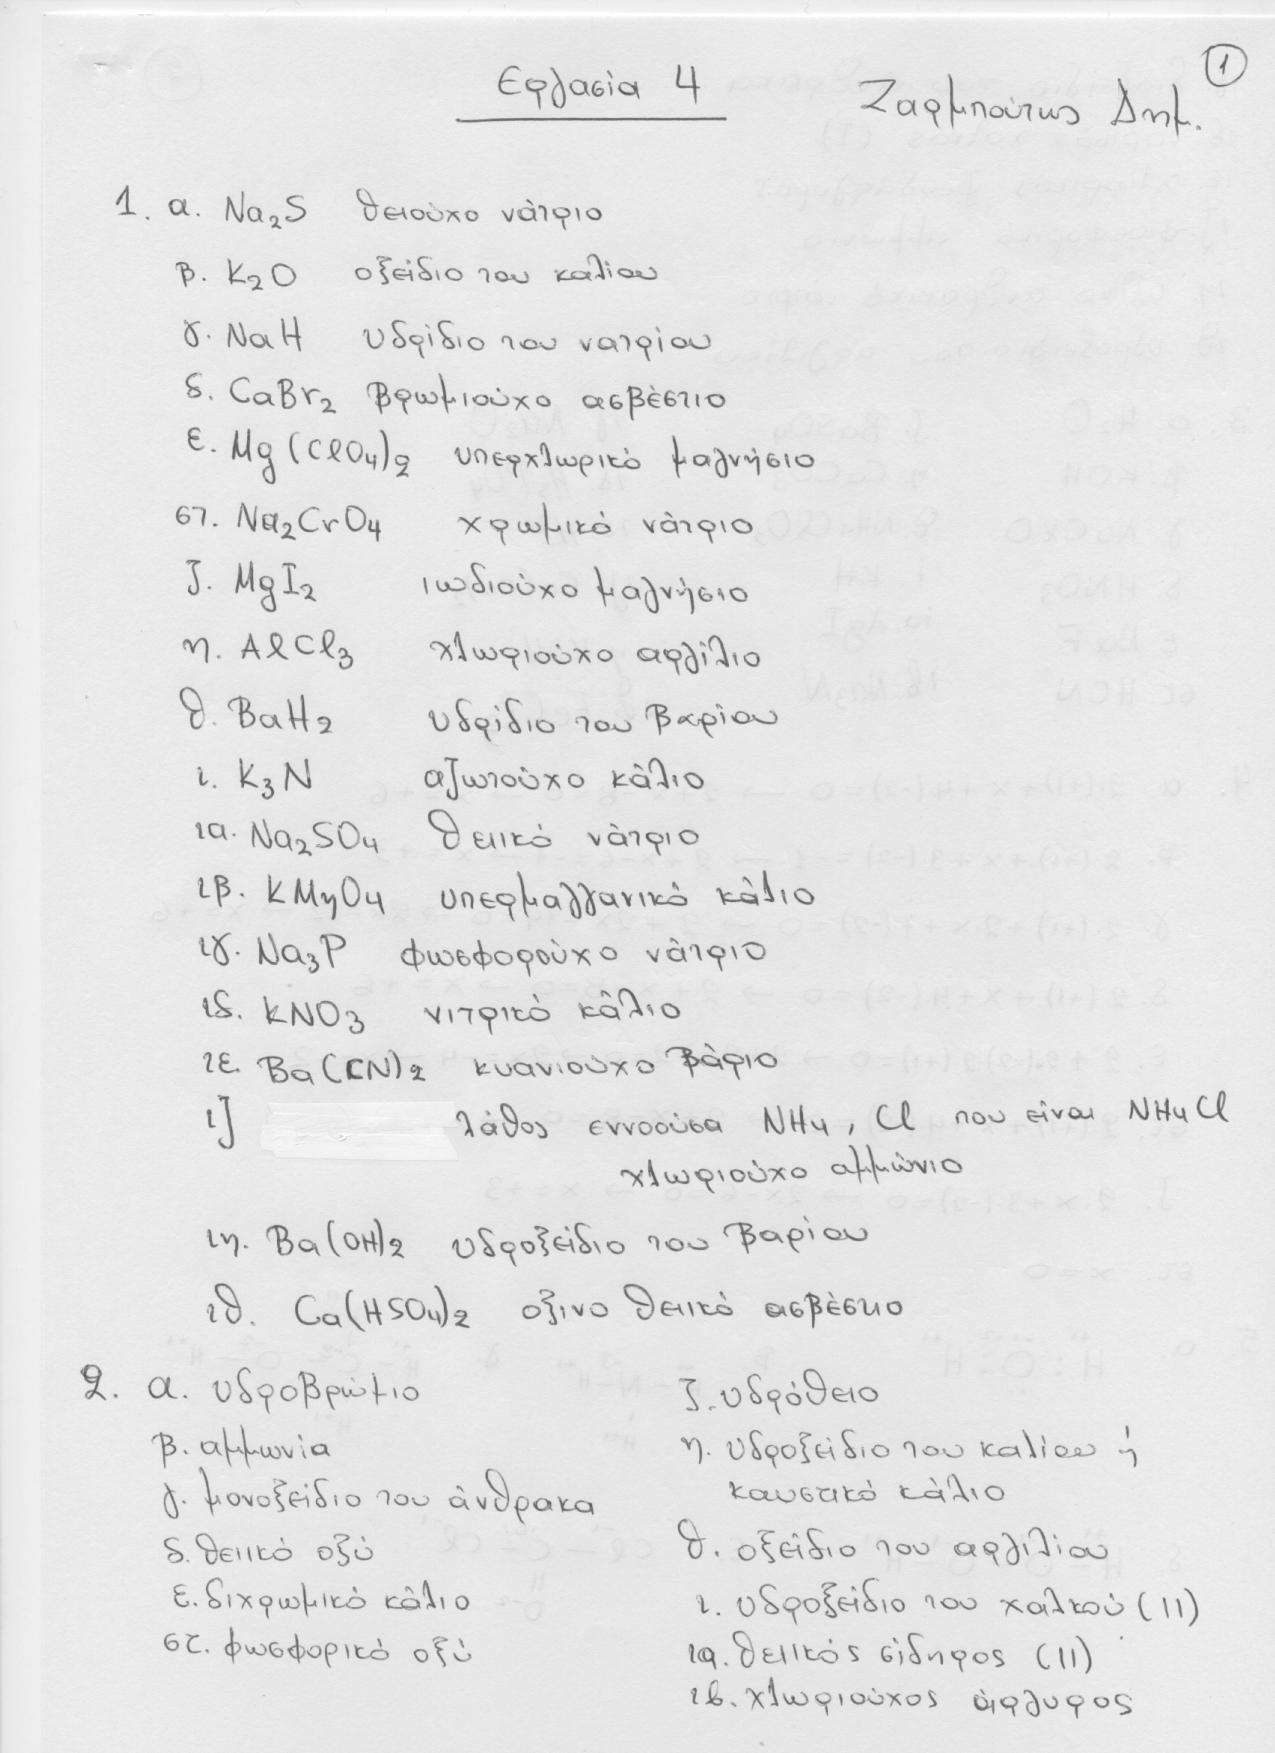 1
Εργασία 4
Ζαρμπούτης Δημ.
1. α. Na2S θειούχο νάτριο
β. K2O οξείδιο του καλίου
γ. NaH υδρίδιο του νατρίου
δ. CaBr2 βρωμιούχο ασβέστιο
ε. Mg(ClO4)2 υπερχλωρικό μαγνήσιο
στ. Na2CrO4 χρωμικό νάτριο
ζ. MgI2 ιωδιούχο μαγνήσιο
η. AlCl3 χλωριούχο αργίλιο
θ. BaH2 υδρίδιο του βαρίου
ι. K3N αζωτούχο κάλιο
ια. Na2SO4 θειικό νάτριο
ιβ. KMnO4 υπερμαγγανικό κάλιο
ιγ. Na3P φωσφορούχο νάτριο
ιδ. KNO3 νιτρικό κάλιο
ιε. Ba(CN)2 κυανιούχο βάριο
ιζ λάθος εννοούσα NH4, Cl που είναι NH4Cl
χλωριούχο αμμώνιο
ιη. Ba(OH)2 υδροξείδιο του βαρίου
ιθ. Ca(HSO4)2 οξινο θειικό ασβέστιο
2. α. υδροβρώμιο
β. αμμωνία
γ. μονοξείδιο του άνθρακα
δ. θειικό οξύ
ε. διχρωμικό κάλιο
στ. φωσφορικό οξύ
ζ. υδρόθειο
η. υδροξείδιο του καλίου ή
καυστικό κάλιο
θ. οξείδιο του αργιλίου
ι. υδροξείδιο του χαλκού (II)
ια. θειικός σίδηρος (II)
ιβ. χλωριούχος άργυρος